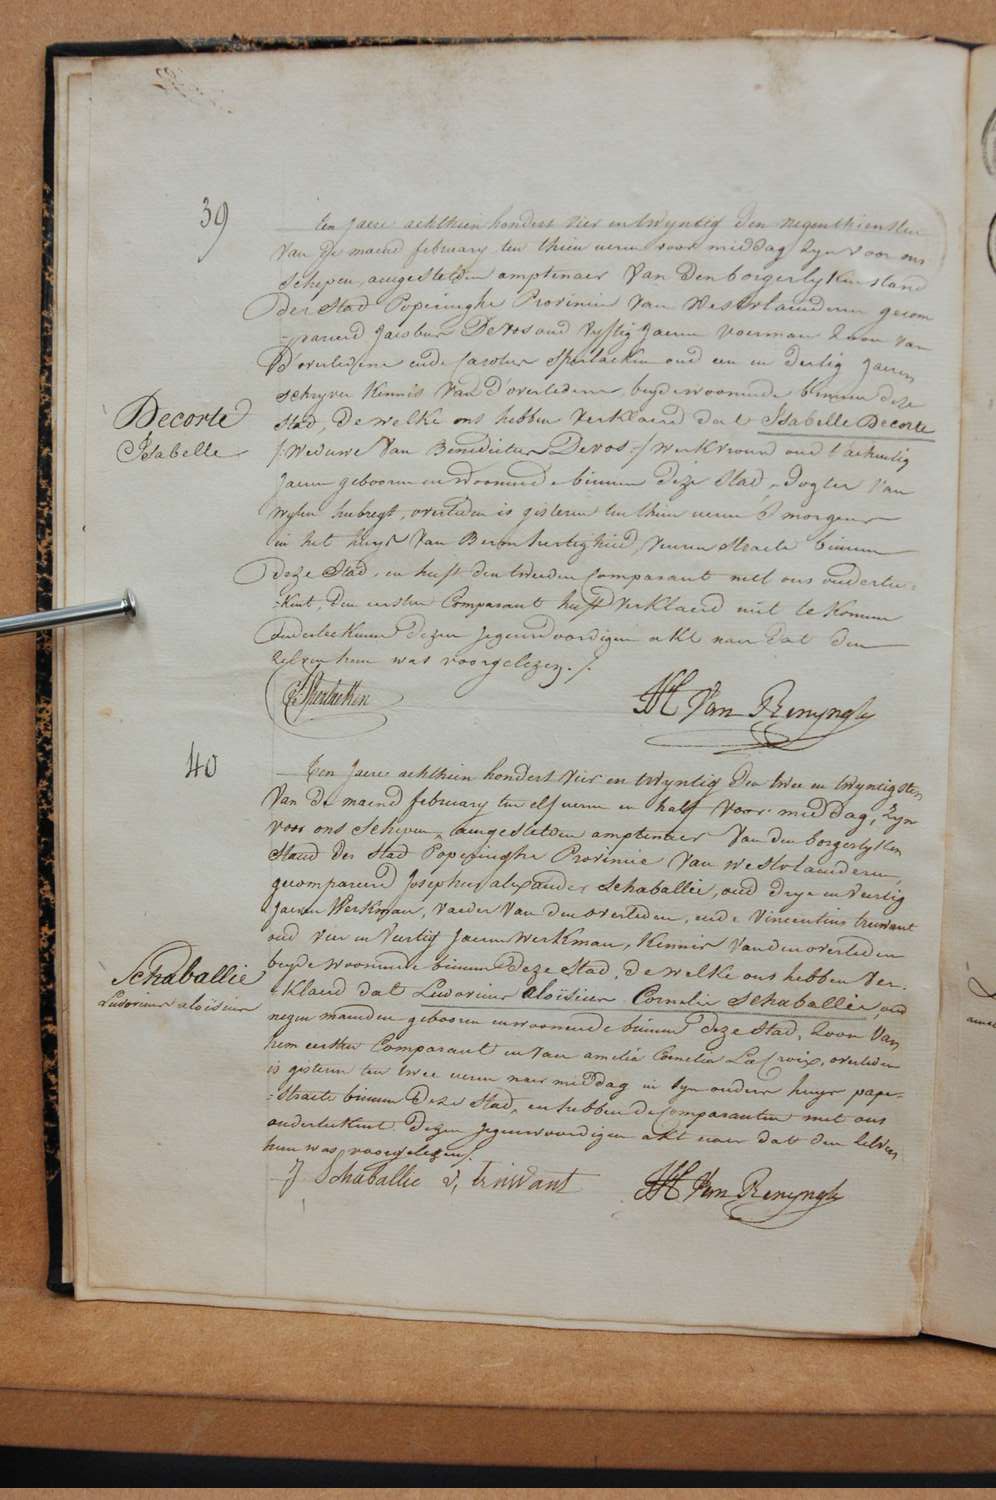 39
Een Jaere achthien hondert vier en twyntig den negenthiensten
Van de maend february ten thien ueren voor middag Zyn voor ons
Schepen, aengestelden amptenaer Van den borgerlyken stand
Der Stad Poperinghe Provincie Van Westvlaenderen gecom
-pareerd Jacobus Devos oud vyftig Jaeren voerman Zoon van
D'overledene ende Carolus Sperlaeken oud een en dertig Jaeren
schryver Kennis Van D'overledene, beyde woonende binnen deze
Stad, De welke ons hebben verklaerd dat Isabelle Decorte
Decorte
Isabelle
/: Weduwe Van Benedictus Devos :/ werkvrouw oud tachentig
Jaeren gebooren en woonende binnen deze Stad, Dogter Van
wylen hubregt, overleden is gisteren ten thien ueren S' morgens
in het huys Van Bermhertigheid, veuren straete binnen
Deze Stad, en heeft den tweeden Comparant met ons onderteе-
-kent, Den eersten Comparant heeft verklaerd niet te konnen
onderteekenen dezen Jegenwoordigen akt naer dat den
zelven hun was voorgelezen ./.
C: Sperlaeken
H Van Renynghe
40
Een Jaere achthien hondert vier en twyntig Den twee en twyntigsten
Van De maend february ten elf ueren en half voor middag, Zyn
voor ons Schepen, aengestelden amptenaer Van den borgerlyken
Stand Der Stad Poperinghe Provincie Van Westvlaenderen,
gecompareerd Josephus alexander Schaballie, oud drye en veertig
Jaeren Werkman, vaeder Van den overleden, ende Vincentius truwant
oud vier en veertig Jaeren Werkman, Kennis Van den overleden
beyde woonende binnen Deze Stad, de welke ons hebben ver-
-klaerd dat Ludovicus aloïsius Cornelis Schaballie, oud
Schaballie
Ludovicus aloisius
negen maenden gebooren en woonende binnen deze Stad, Zoon Van
hem eersten Comparant en Van amelia Cornelia La Croix, overleden
is gisteren ten twee ueren naer middag in Zyn ouders huys pape-
-straete binnen Deze Stad, en hebben de Comparanten met ons
onderteekent Dezen Jegenwoordigen akt naer dat den zelven
hun was voorgelezen /.
J Schaballie V, truwant
H Van Renynghe